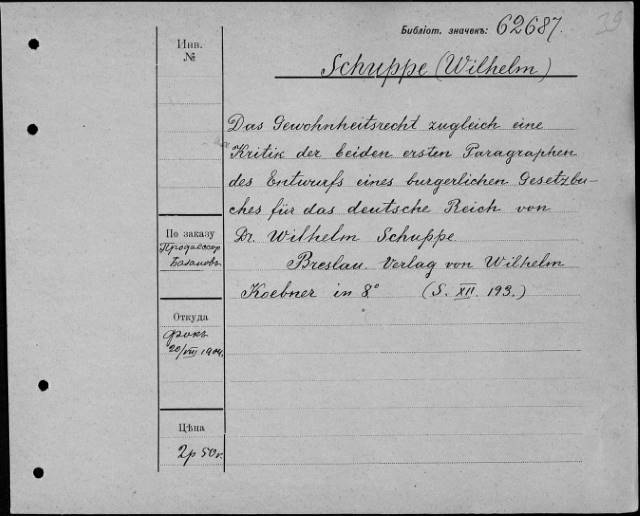 39
Библіот. значекъ: 62687.
Инв.
№
Schuppe (Wilhelm)
Das Gewohnheitsrecht zugleich eine
Kritik der beiden ersten Paragraphen
des Entwurfs eines burgerlichen Gesetzbu-
ches für das deutsche Reich von
Dr. Wilhelm Schuppe.
Breslau. Verlag von Wilhelm
Koebner in 8° (S. XII. 193.)
По заказу
Профессор
Базановъ
Откуда
Фокъ
20/VIII 1904.
Цѣна
2р 50к.